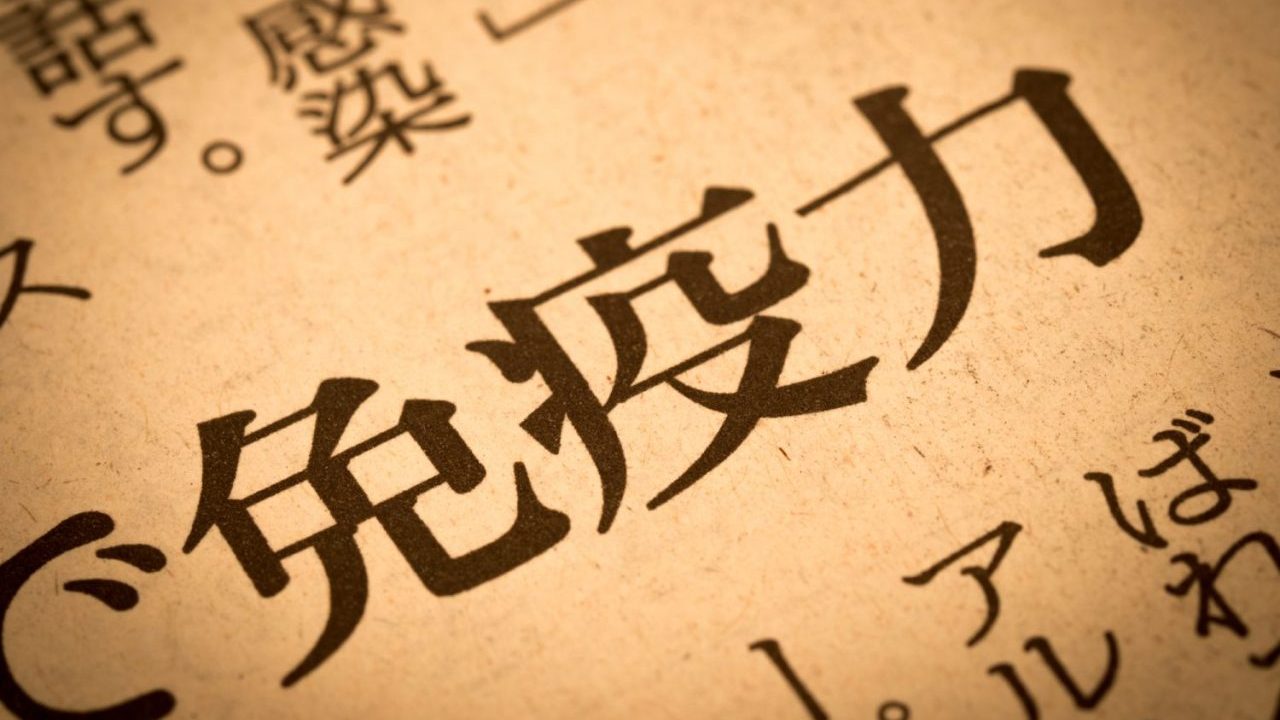 話す。
感染
」
ス
で免疫力
ば
わ
アル